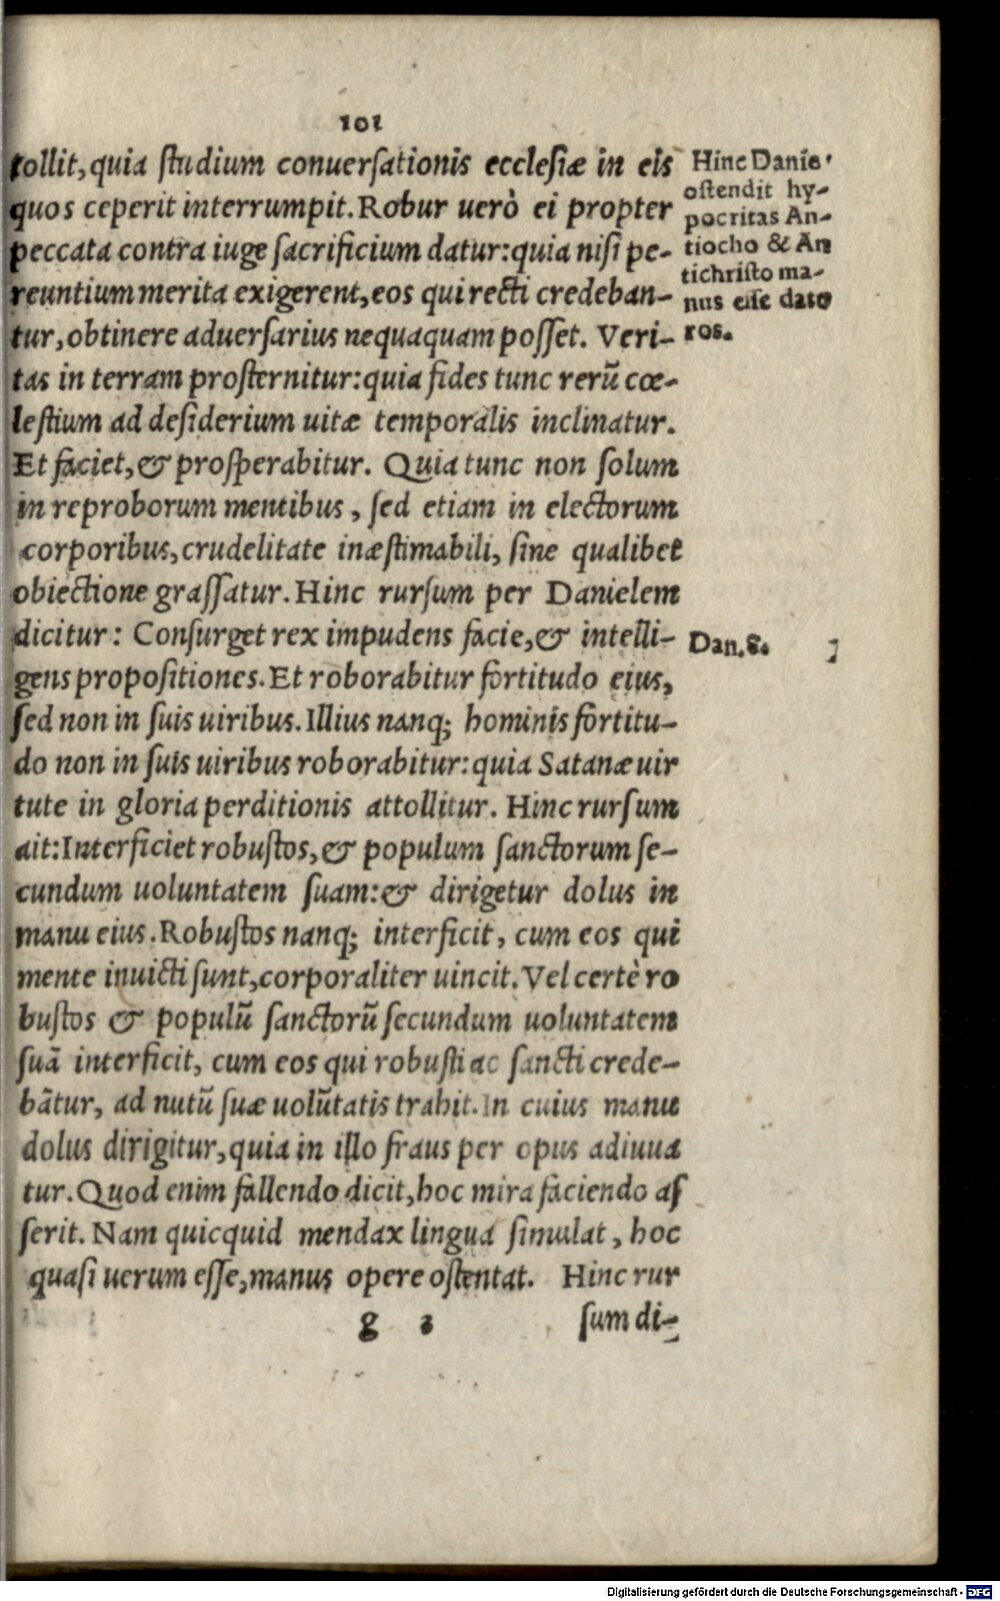 101
tollit, quia ſtudium conuerſationis eccleſiæ in eis
quos ceperit interrumpit. Robur uerò ei propter
peccata contra iuge ſacrificium datur: quia niſi pe-
reuntium merita exigerent, eos qui recti credeban-
tur, obtinere aduerſarius nequaquam poſſet. Veri-
tas in terram proſternitur: quia fides tunc rerũ cœ-
leſtium ad deſiderium uitæ temporalis inclinatur.
Et faciet, & proſperabitur. Quia tunc non ſolum
in reproborum mentibus, ſed etiam in electorum
corporibus, crudelitate inæſtimabili, ſine qualibet
obiectione graſſatur. Hinc rurſum per Danielem
dicitur: Conſurget rex impudens facie, & intelli-
gens propoſitiones. Et roborabitur fortitudo eius,
ſed non in ſuis uiribus. Illius nanq; hominis fortitu-
do non in ſuis uiribus roborabitur: quia Satanæ uir
tute in gloria perditionis attollitur. Hinc rurſum
ait: Interficiet robuſtos, & populum ſanctorum ſe-
cundum uoluntatem ſuam: & dirigetur dolus in
manu eius. Robuſtos nanq; interficit, cum eos qui
mente inuicti ſunt, corporaliter uincit. Vel certè ro
buſtos & populũ ſanctorũ ſecundum uoluntatem
ſuã interficit, cum eos qui robuſti ac ſancti crede-
bãtur, ad nutũ ſuæ uolũtatis trahit. In cuius manu
dolus dirigitur, quia in illo fraus per opus adiuua
tur. Quod enim fallendo dicit, hoc mira faciendo aſ
ſerit. Nam quicquid mendax lingua ſimulat, hoc
quaſi uerum eſſe, manus opere oſtentat. Hinc rur
g 3 ſum di-
Hinc Danie
oſtendit hy-
pocritas An-
tiocho & An
tichriſto ma-
nus eſſe datu
ros.
Dan. 8.
Digitalisierung gefördert durch die Deutsche Forschungsgemeinschaft - DFG